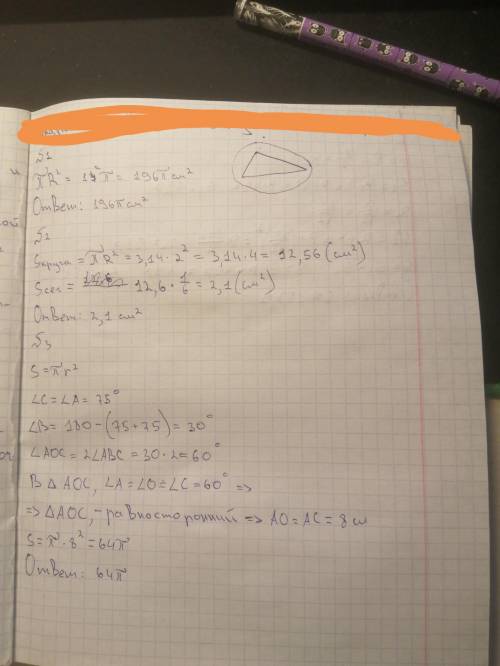 √1
πR² = 14²π = 196π см²
Ответ: 196π см²
√2
Sкруга = πR² = 3,14 · 2² = 3,14 · 4 = 12,56 (см²)
Sсег = 12,6 · 1/6 = 2,1 (см²)
Ответ: 2,1 см²
√3
S = πr²
∠C = ∠A = 75°
∠B = 180 - (75 + 75) = 30°
∠AOC = 2∠ABC = 30 · 2 = 60°
В △ AOC, ∠A = ∠O = ∠C = 60° =>
=> △AOC, - равносторонний => AO = AC = 8 см
S = π · 8² = 64π
Ответ: 64π